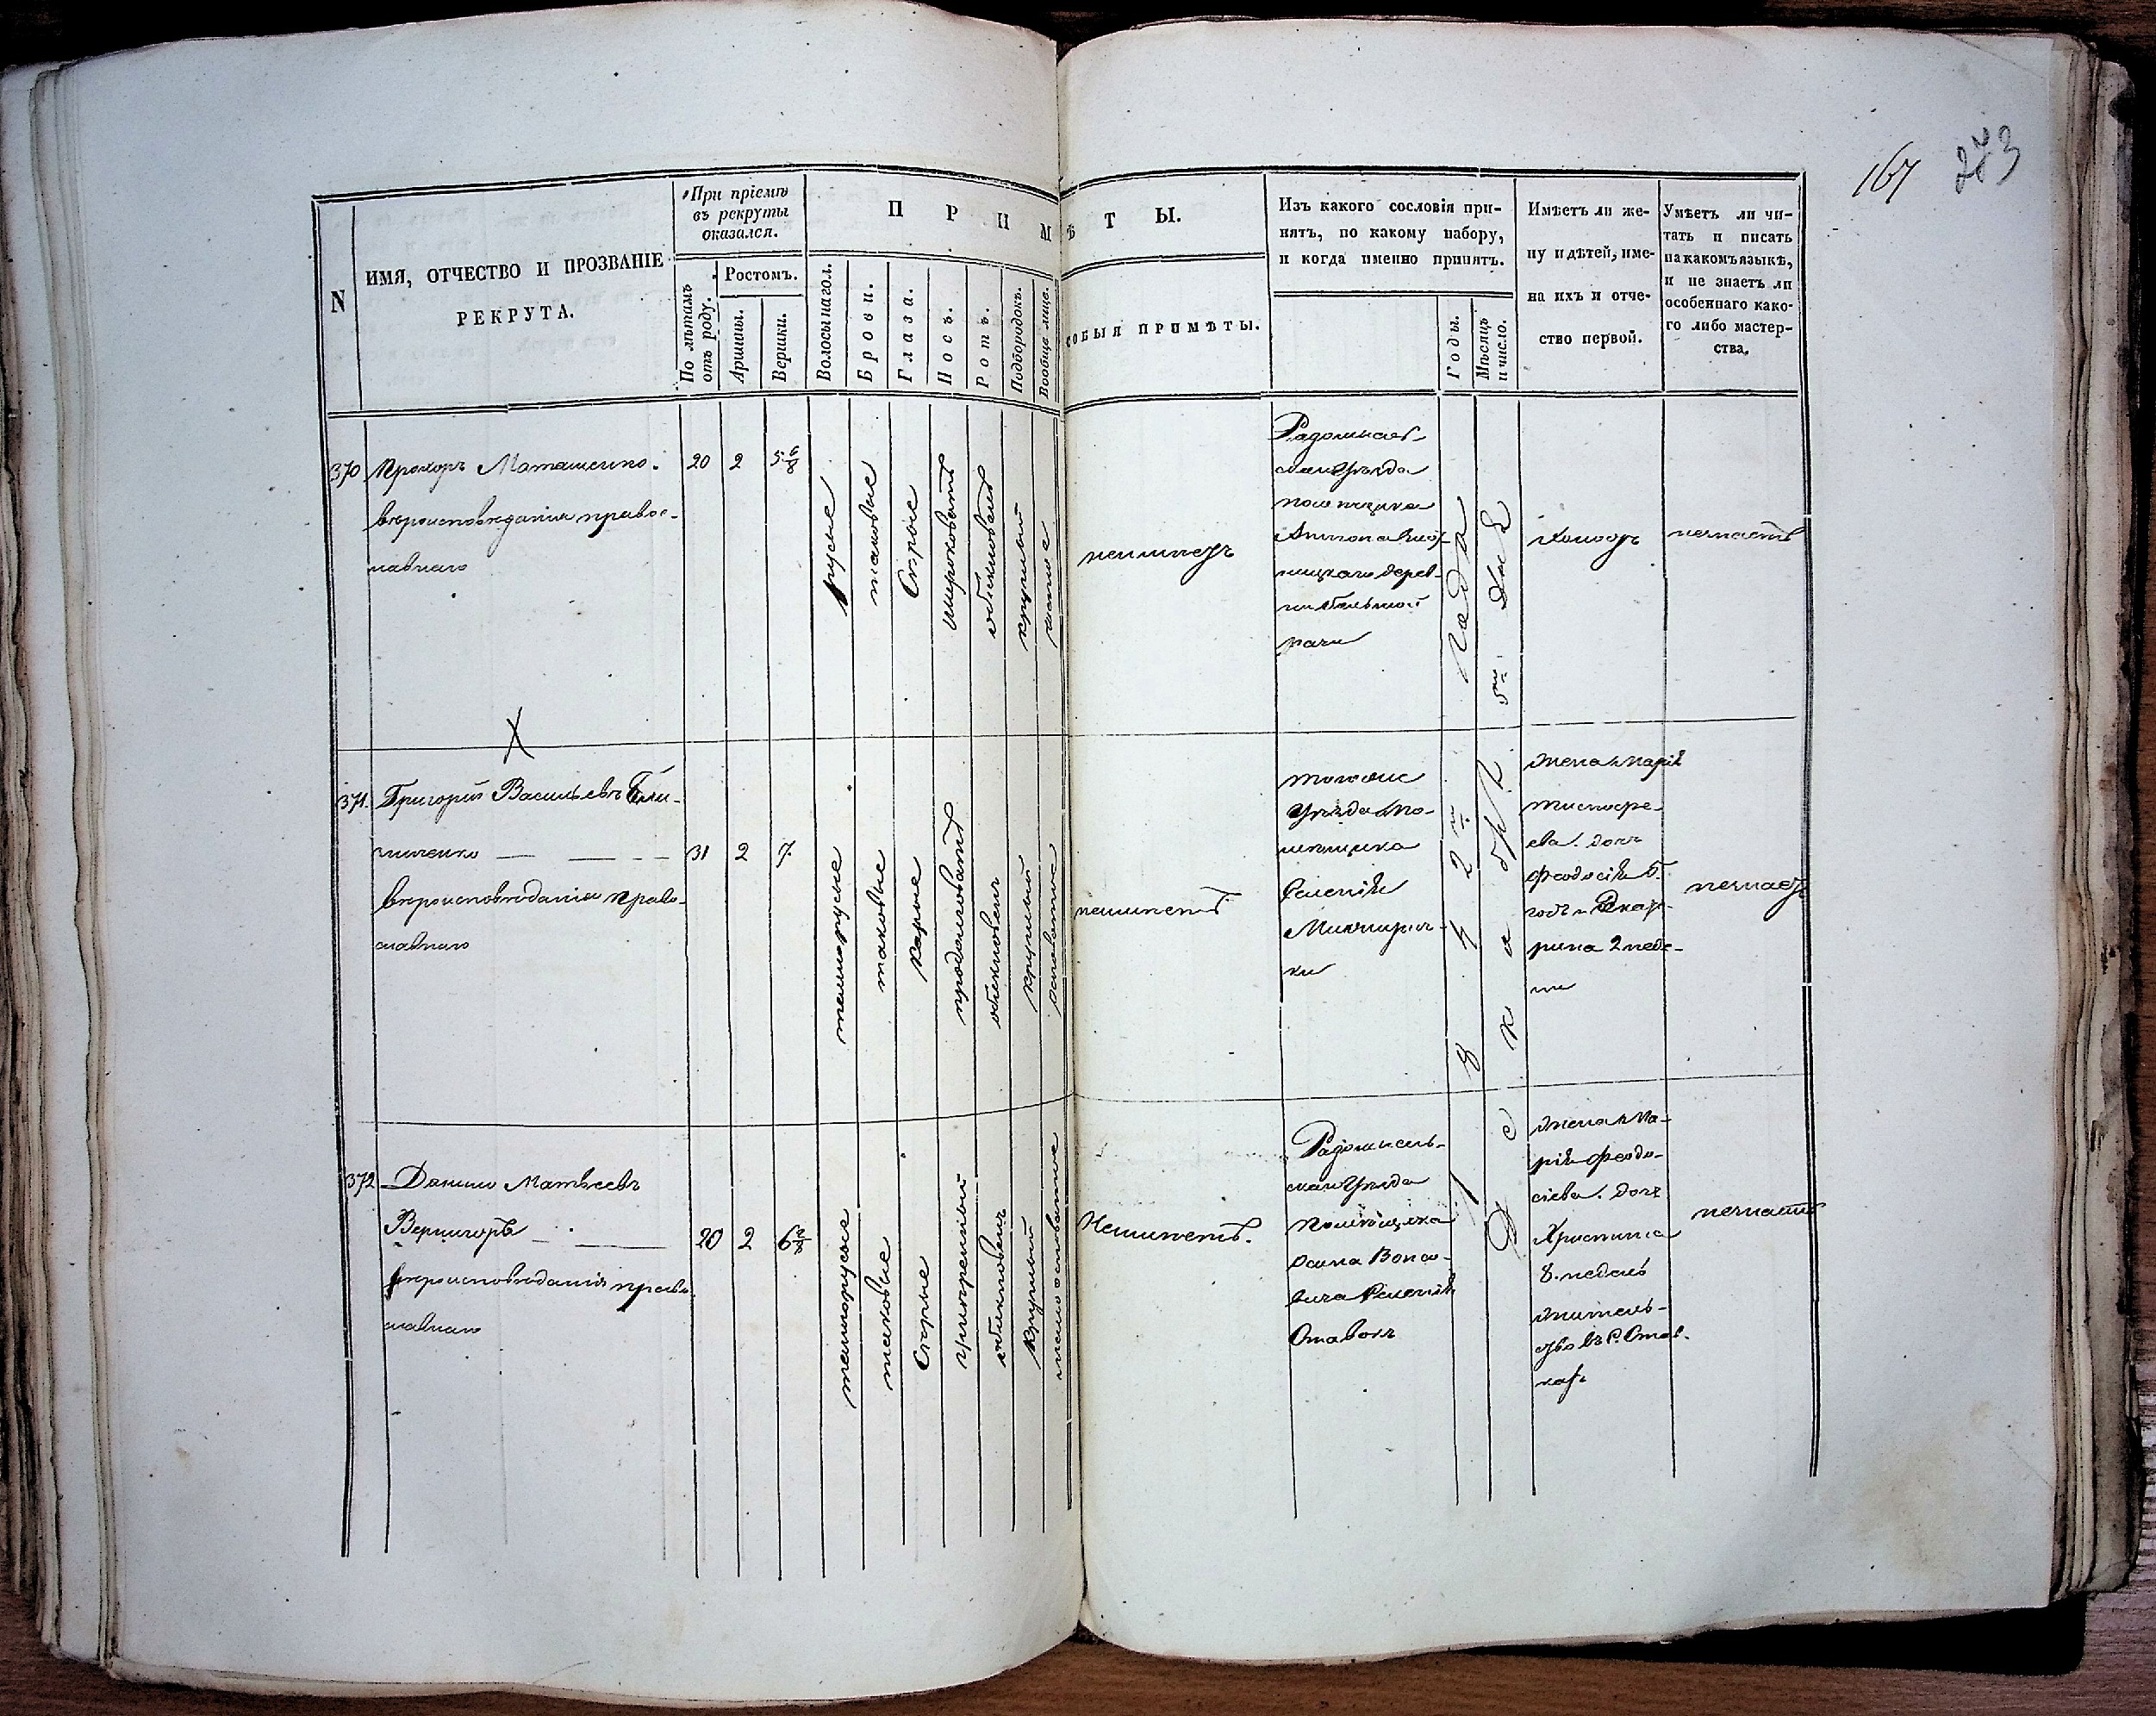 167 273
N
ИМЯ, ОТЧЕСТВО И ПРОЗВАНІЕ
РЕКРУТА.
При пріемѣ
въ рекруты
оказался.
По лѣтамъ
отъ роду.
Ростомъ.
Аршины.
Вершки.
П Р И М Ѣ Т Ы.
Волосы на гол.
Брови.
Глаза.
Носъ.
Ротъ.
Подбородокъ.
Вообще лице.
СОБЫЯ ПРИМѢТЫ.
Изъ какого сословія при-
нятъ, по какому набору,
и когда именно принятъ.
Годы.
Мѣсяцъ
и число.
Имѣетъ ли же-
ну и дѣтей, име-
на ихъ и отче-
ство первой.
Умѣетъ ли чи-
тать и писать
на какомъ языкѣ,
и не знаетъ ли
особеннаго како-
го либо мастер-
ства.
370 Прохоръ Маташенко.
вѣроисповѣданія правос-
лавнаго
20 2 5 6/8
русые
таковые
Сѣрые
широковатъ
обикновенъ
круглый
чистое
неимѣетъ
Радомысль-
скаго Уѣзда
помѣщика
Антона
дерев-
ни
рачи
холостъ
незнаетъ
371. Григорій Васильевъ
зниченко
вѣроисповѣданія право-
славнаго
31 2 7.
темнорусые
таковые
карые
продолговатъ
обикновенъ
круглый
рябоватое
неимѣетъ
того же
Уѣзда по-
мѣщика
Селенія
ки
жена Марія
Тимофѣ-
ева. дочь
Феодосія 6.
годъ и Екате-
рина 2 неде-
ли
незнаетъ
372 Данило Матвѣевъ
Вернигоръ
вѣроисповѣданія право-
славнаго
20 2 6 2/8
темнорусые
таковые
Сѣрые
умѣренный
обикновенъ
круглый
Неимѣетъ.
Радомысль-
скаго Уѣзда
Помѣщика
Селенія
Ставокъ
жена Ма-
рія Феодо-
сіева. дочь
Христина
8. недель
житель-
ство въ С. Став-
кахъ
незнаетъ
1842 Года
Декабря 5 Дня